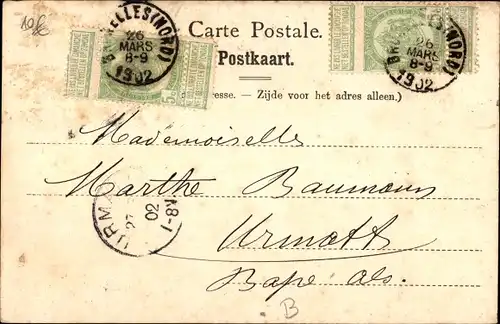 10fc
Carte Postale.
Postkaart.
BRUXELLES (NORD)
26
MARS
8-9
1902
BRUXELLES (NORD)
26
MARS
8-9
1902
resse. - Zijde voor het adres alleen.)
Mademoiselle
Marthe Baumann
Urmatt
Basse Als.
URMA
27
02
8-1
B